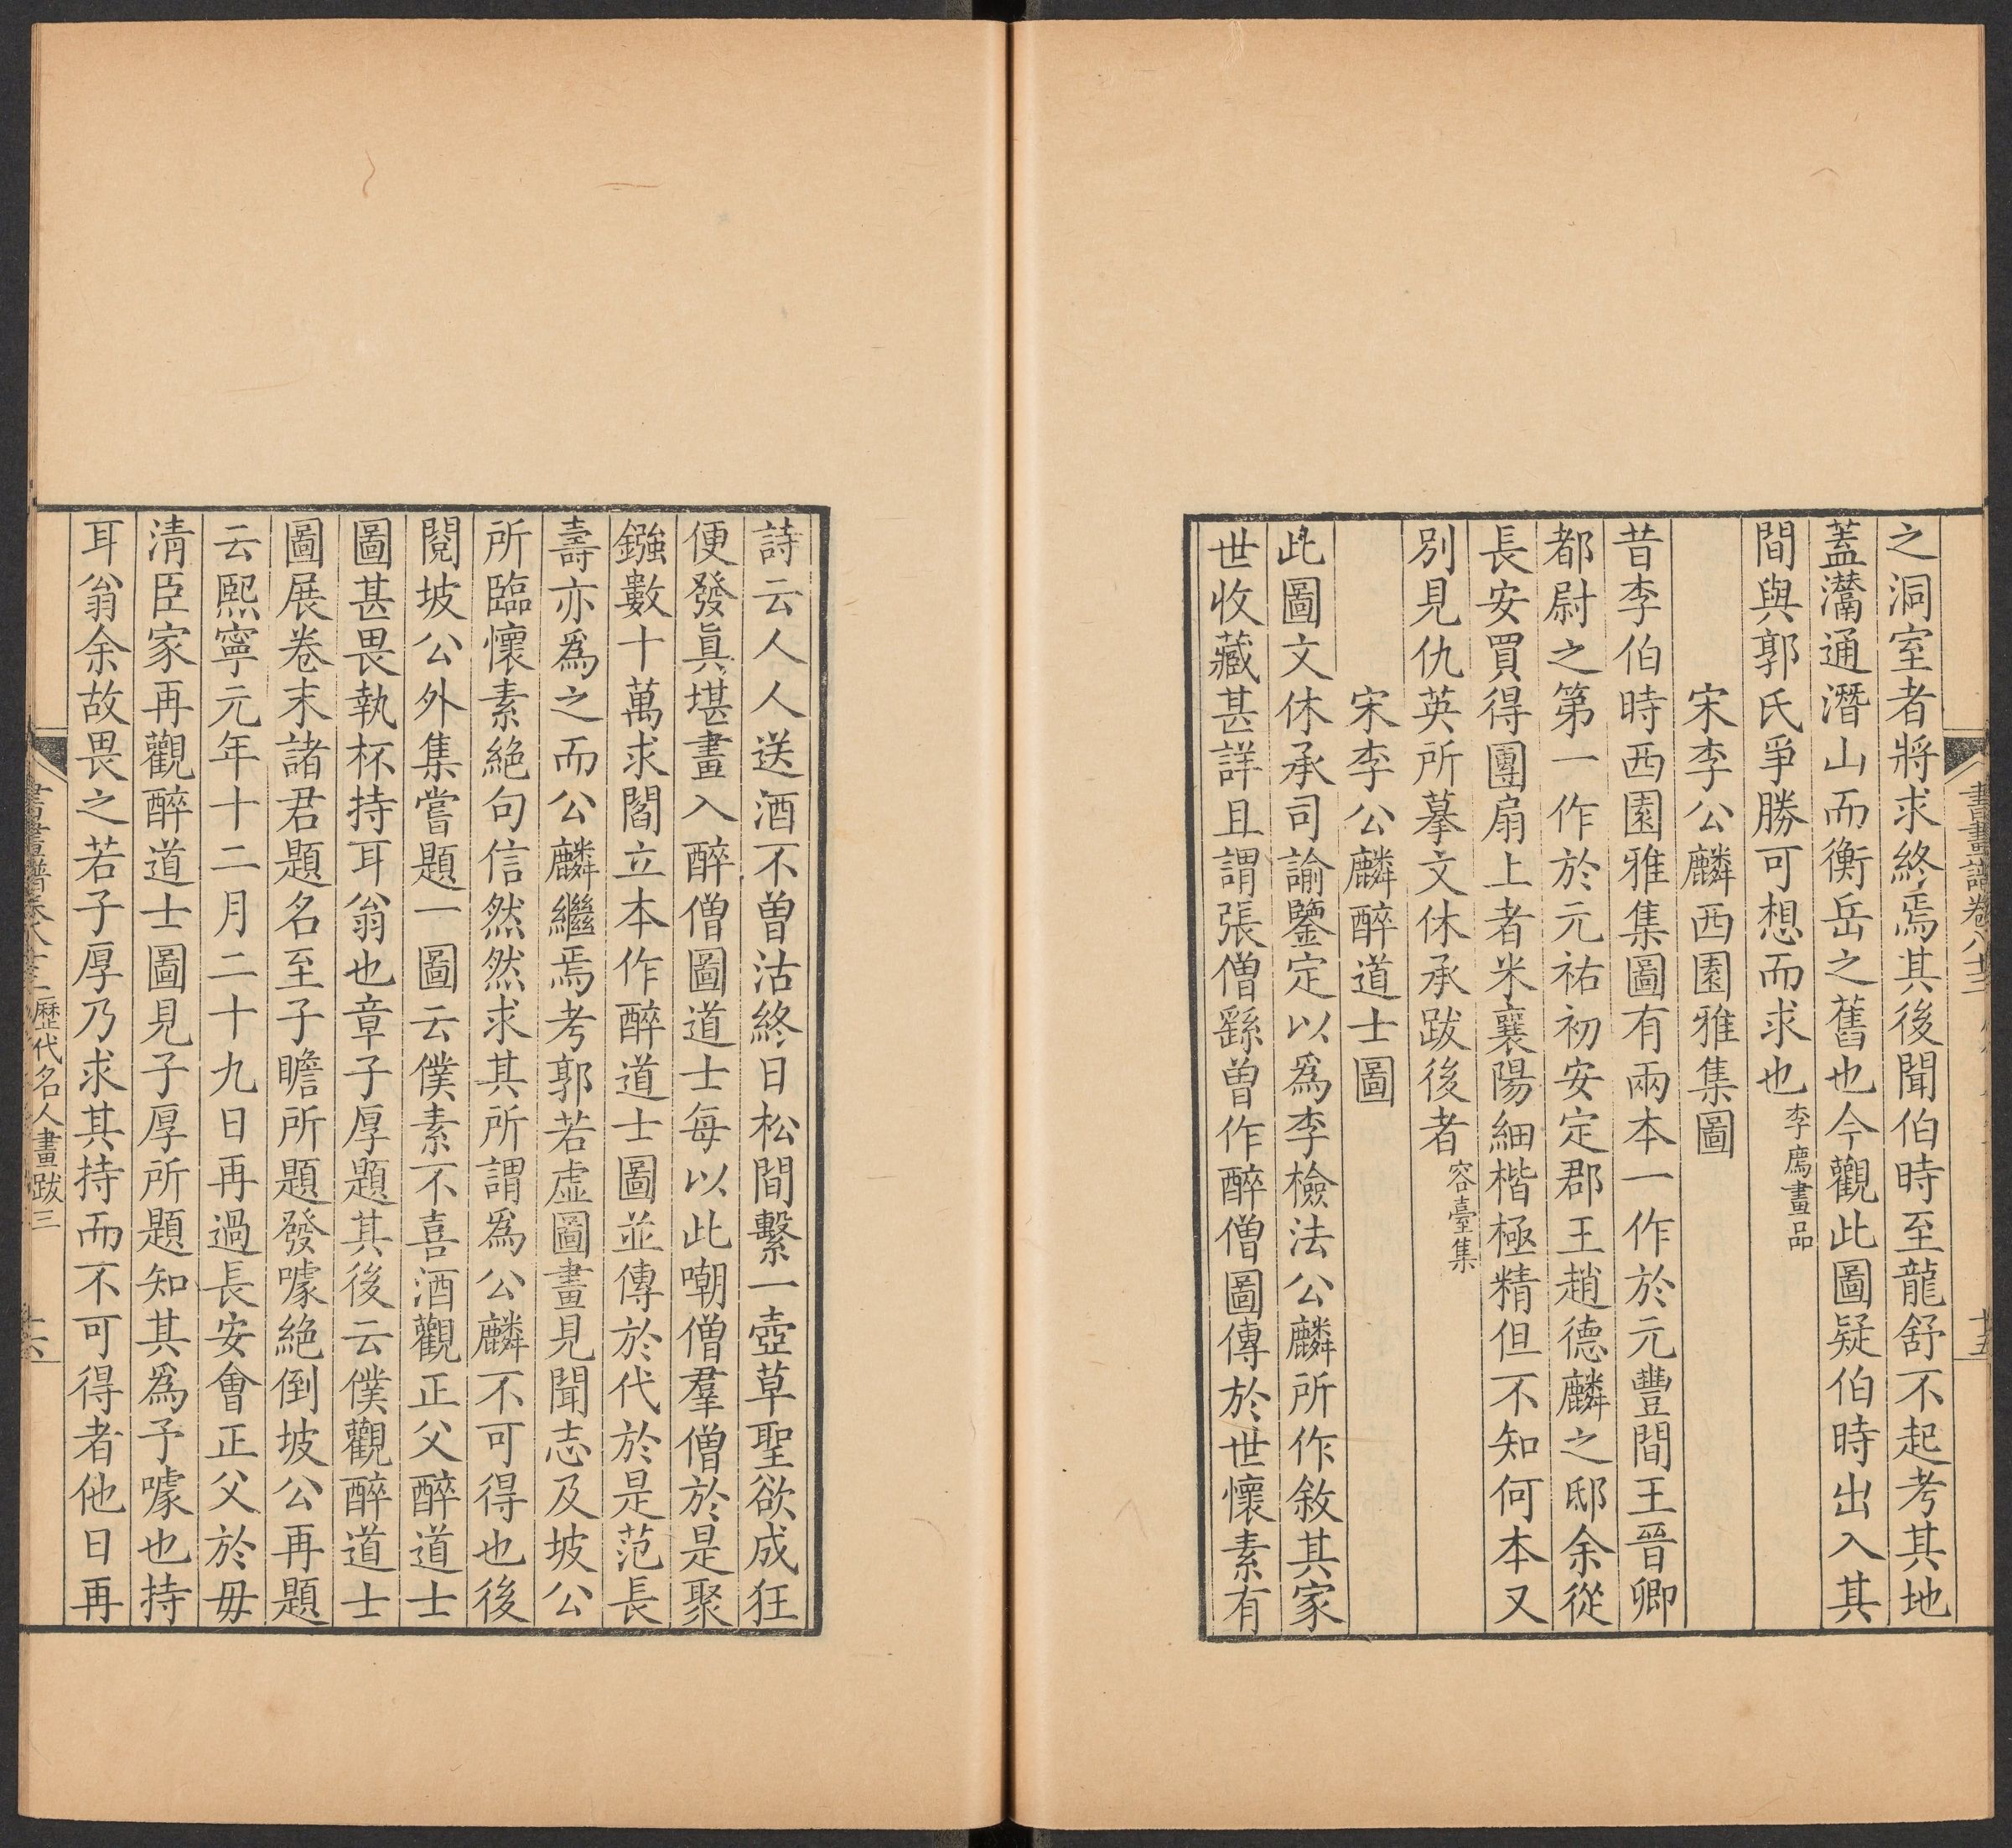 之洞室者將求終焉其後聞伯時至龍舒不起考其地
蓋灊通潛山而衡岳之舊也今觀此圖疑伯時出入其
間與郭氏爭勝可想而求也李廌畫品
宋李公麟西園雅集圖
昔李伯時西園雅集圖有兩本一作於元豐間王晉卿
都尉之第一作於元祐初安定郡王趙德麟之邸余從
長安買得團扇上者米襄陽細楷極精但不知何本又
別見仇英所摹文休承跋後者容臺集
宋李公麟醉道士圖
此圖文休承司諭鑒定以為李檢法公麟所作敘其家
世收藏甚詳且謂張僧繇曾作醉僧圖傳於世懷素有
詩云人人送酒不曾沽終日松間繫一壺草聖欲成狂
便發真堪畫入醉僧圖道士每以此嘲僧羣僧於是聚
鏹數十萬求閻立本作醉道士圖並傳於代於是范長
壽亦為之而公麟繼焉考郭若虛圖畫見聞志及坡公
所臨懷素絶句信然然求其所謂為公麟不可得也後
閱坡公外集嘗題一圖云僕素不喜酒觀正父醉道士
圖甚畏執杯持耳翁也章子厚題其後云僕觀醉道士
圖展卷末諸君題名至子瞻所題發噱絶倒坡公再題
云熙寧元年十二月二十九日再過長安會正父於毋
清臣家再觀醉道士圖見子厚所題知其為予噱也持
耳翁余故畏之若子厚乃求其持而不可得者他日再
歷代名人畫跋三